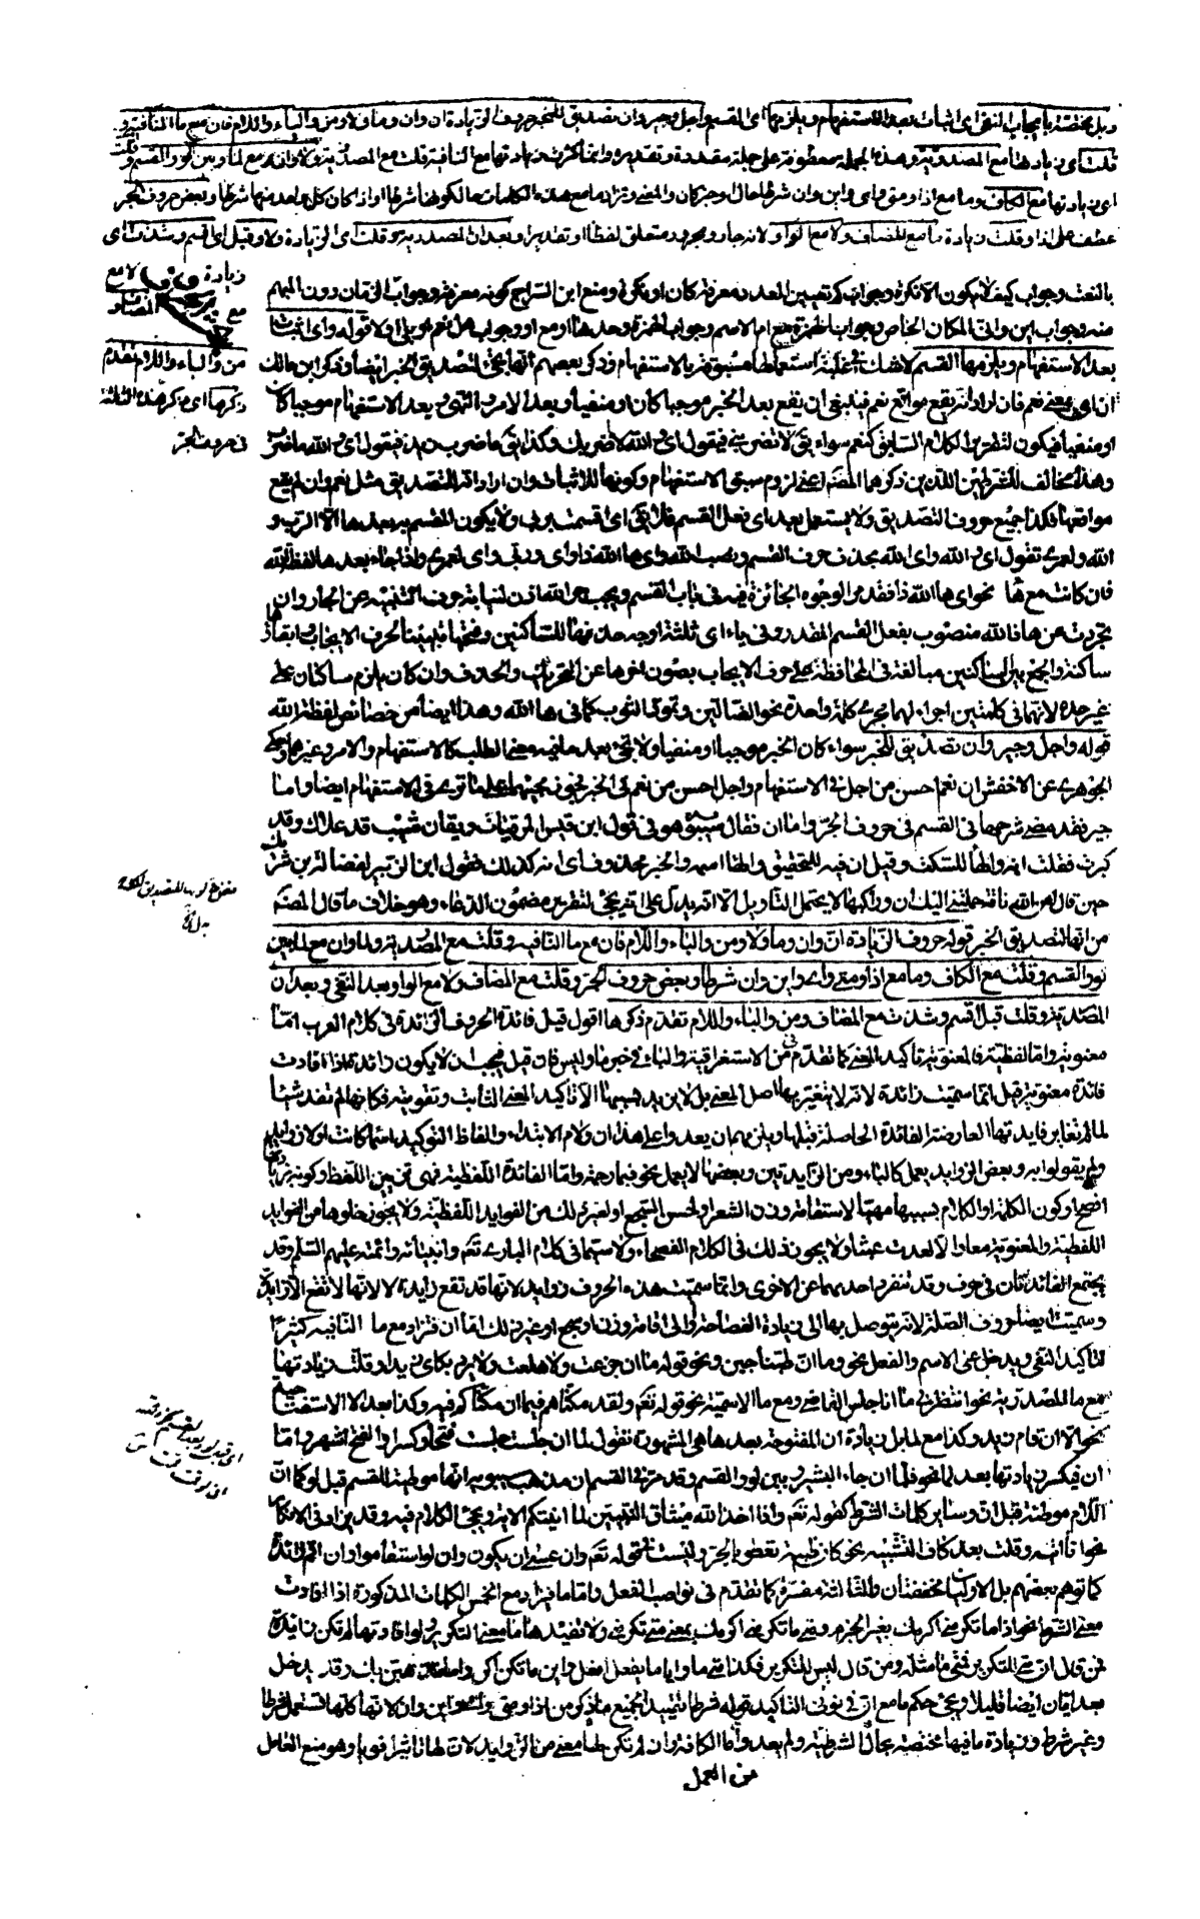 وبلى مختصة بايجاب النفى اى اثبات بعد الاستفهام ويلزمها اى القسم واجل وجير وان تصديق للمخبر حروف الزيادة ان وان وما ولا ومن والباء واللام فان مع ما النافية و
قلت اى زيادتها مع المصدرية وهذه الجملة معطوفة على جملة مقدرة وتقديره وانما كثرت زيادتها مع النافية قلت مع المصدرية ولما وان مع لما وبين لو والقسم وقلت
اى زيادتها مع الكاف وما مع اذا ومتى واى واين وان شرطا حال او خبر كان والمعنى وتزاد ما مع هذه الكلمات حالكونها شرطا او اذا كان كل واحد منها شرطا وبعض حروف الجر
عطف على اذا وقلت زيادة ما مع المضاف ولا مع الواو ولانه جار ومجرور متعلق لفظا او تقديرا وبعد ان المصدرية وقلت اى الزيادة ولا وقبل اى اقسم وشذت اى
زيادة لا مع
مع المضاف
من والباء واللام تقدم
ذكرها اى ذكر هذه الثلثة
فى حروف الجر
بالنعت وجواب كيف لا يكون الا نكرة وجواب كم تعيين العدد معرفة كان او نكرة ومنع ابن السراج كونه معرفة وجواب الزمان دون المبهم
منه وجواب اين وانى المكان الخاص وجواب الهمزة مع ام الاسم وجواب الهمزة وحدها او مع او وجواب هل نعم او بلى او لا قوله واى اثبات
بعد الاستفهام ويلزمها القسم لا شك فى غلبة استعمالها مسبوقة بالاستفهام وذكر بعضهم انها تجئ لتصديق الخبر ايضا وذكر ابن مالك
ان اى بمعنى نعم فان اراد انه يقع مواقع نعم فينبغى ان يقع بعد الخبر موجبا كان او منفيا وبعد الامر والنهى وبعد الاستفهام موجبا كان
او منفيا فيكون لتقرير الكلام السابق كنعم سواء يقال لا تضربنى فيقول اى والله لا اضربك وكذا يقال ما ضرب زيد فيقول اى والله ما ضرب
وهذا مخالف للشرطين اللذين ذكرهما المصنف اعنى لزوم سبق الاستفهام وكونها للاثبات وان اراد انه للتصديق مثل نعم وان لم يقع
مواقعها فكذا جميع حروف التصديق ولا يستعمل بعد اى فعل القسم فلا يقال اى اقسمت بربى ولا يكون المقسم به بعدها الا الرب و
الله ولعمرى تقول اى والله واى الله بحذف حرف القسم ونصب الله واى ها الله ذا واى وربى واى لعمرى واذا جاء بعدها لفظ الله
فان كانت مع ها نحو اى ها الله ذا فقد مر الوجوه الجائزة فيه فى باب القسم ويجب جر الله اذن لنيابة حرف التنبيه عن الجار وان
تجردت عن ها فالله منصوب بفعل القسم المقدر وفى ياء اى ثلثة اوجه حذفها للساكنين وفتحها تبيينا لحرف الايجاب وابقاؤها
ساكنة والجمع بين الساكنين مبالغة فى المحافظة على حرف الايجاب بصون آخرها عن التحريك والحذف وان كان يلزم ساكنان على
غير حده لانهما فى كلمتين اجراء لهما مجرى كلمة واحدة نحو الضالين وتمود الثوب كما فى ها الله وهذا ايضا من خصائص لفظة الله
قوله واجل وجير وان تصديق للمخبر سواء كان الخبر موجبا او منفيا ولا يجئ بعد ما فيه معنى الطلب كالاستفهام والامر وغيرهما وحكى
الجوهرى عن الاخفش ان نعم احسن من اجل فى الاستفهام واجل احسن من نعم فى الخبر فجوز مجيئها على ما ترى فى الاستفهام ايضا واما
جير فقد مضى شرحها فى القسم فى حروف الجر واما ان فقال سيبويه هو فى قول ابن قيس الرقيات ويقلن شيب قد علاك وقد
كبرت فقلت انه والهاء للسكت وقيل ان فيه للتحقيق والهاء اسمه والخبر محذوف اى انه كذلك فقول ابن الزبير لفضالة بن شريك
حين قال لعن الله ناقة حملتنى اليك ان وراكبها لا يحتمل التأويل الا انه يدل على انه يجئ لتقرير مضمون الدعاء وهو خلاف ما قال المصنف
من انها لتصديق الخبر قوله حروف الزيادة ان وان وما ولا ومن والباء واللام فان مع ما النافية وقلت مع المصدرية ولما وان مع لما وبين
لو والقسم وقلت مع الكاف وما مع اذا ومتى واى واين وان شرطا وبعض حروف الجر وقلت مع المضاف ولا مع الواو بعد النفى وبعد ان
المصدرية وقلت قبل اقسم وشذت مع المضاف ومن والباء واللام تقدم ذكرها اقول قيل فائدة الحروف الزائدة فى كلام العرب اما
معنوية واما لفظية فالمعنوية تأكيد المعنى كما تقدم فى من الاستغراقية والباء فى خبر ما وليس فان قيل فيجب ان لا يكون زائدة اذا افادت
فائدة معنوية قيل انما سميت زائدة لانه لا يتغير بها اصل المعنى بل لا يزيد بسببها الا تأكيد المعنى الثابت وتقويته فكانها لم تفد شيئا
لما لم تغاير فايدتها العارضة الفائدة الحاصلة قبلها ويلزمهم ان يعدوا على هذا ان ولام الابتداء والفاظ التوكيد اسما كانت اولا زوايد
ولم يقولوا به وبعض الزوايد يعمل كالباء ومن الزايدتين وبعضها لا يعمل نحو فبما رحمة واما الفائدة اللفظية فهى تزيين اللفظ وكونه بزيادتها
افصح او كون الكلمة او الكلام بسببها مهيئا لاستقامة وزن الشعر او لحسن السجع او لغير ذلك من الفوايد اللفظية ولا يجوز خلوها من الفوايد
اللفظية والمعنوية معا والا لعدت عبثا ولا يجوز ذلك فى كلام الفصحاء ولا سيما فى كلام البارى تعالى وانبيائه وائمته عليهم السلم وقد
يجتمع الفائدتان فى حرف وقد تنفرد احديهما عن الاخرى وانما سميت هذه الحروف زوايد لانها قد تقع زايدة لا لانها لا تقع الا زايدة
وسميت ايضا حروف الصلة لانه يتوصل بها الى زيادة الفصاحة والى اقامة وزن او سجع او غير ذلك اما ان فتزاد مع ما النافية كثيرا
لتأكيد النفى ويدخل على الاسم والفعل نحو وما ان طبنا جبن ونحو قوله ما ان جزعت ولا هلعت ولا يرد بكاى زيدا وقلت زيادتها
مع ما المصدرية نحو انتظرنى ما ان جلس القاضى ومع ما الاسمية نحو قوله تعالى ولقد مكناهم فيما ان مكناكم فيه وكذا بعد الا الاستفتاحية
نحو الا ان قام زيد وكذا مع لما بل زيادة ان المفتوحة بعدها هى المشهورة تقول لما ان جلست جلست فتحا وكسرا والفتح اشهر واما
ان فيكثر زيادتها بعد لما نحو فلما ان جاء البشير وبين لو والقسم وقد مر فى القسم ان مذهب سيبويه انها موطئة للقسم قبل لو كما ان
اللام موطئة قبل ان وساير كلمات الشرط كقوله تعالى واذا اخذ الله ميثاق النبيين لما اتيتكم الاية ويجئ الكلام فيه وقد يزاد فى الانكار
نحو انا انيه وقلت بعد كاف التشبيه نحو كان ظبية تعطو بالجر وليست نحو قوله تعالى وان عسى ان يكون وان لو استقاموا وان اقم زائدة
كما توهم بعضهم بل الاوليان مخففتان والثالثة مفسرة كما تقدم فى نواصب الفعل واما ما فيزاد مع الخمس الكلمات المذكورة اذا افادت
معنى الشرط نحو اذا ما تكرمنى اكرمك بغير الجزم ومتى ما تكرمنى اكرمك بمعنى متى تكرمنى ولا تفيد ها ما معنى التكرير ولو افادتها لم تكن زايدة
فمن قال ان متى للتكرير فمتى ما مثله ومن قال ليس للتكرير فكذا متى ما وايا ما يفعل افعل واين ما تكن اكن واما وقد يدخل
بعد ايان ايضا قليلا ويجئ حكم ما مع ان فى نونى التأكيد قوله شرطا تقييد لجميع ما ذكر من اذا ومتى واى واين وان لانها كلها تستعمل شرطا
وغير شرط وزيادة ما فيها مختصة بحال الشرطية ولم يعدوا ما الكافة وان لم تكن لها معنى من الزوايد لان لها تاثيرا قويا وهو منع العامل
من العمل